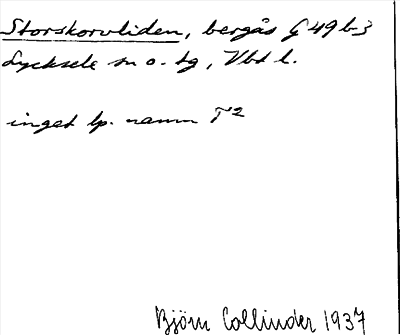 Storskorvliden, bergås G 49 b-3
Lycksele sn o. tg, Vbt l.
inget lp. namn T2
Björn Collinder 1937